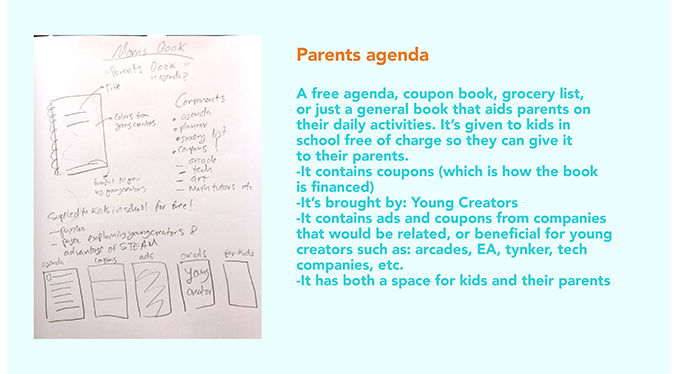 Moms Book
"Parents Book"
or agenda?
Title
Colors from
young creators
brought to you
by youngcreators
Components
• agenda
• planner
• grocery list
• coupons
— arcade
— tech
— art
— math tutors etc
Supplied to kids in school for free!
— puzzles
— pages explaining youngcreators &
advantage of STEAM
agenda
coupons
ads
our ads
for kids
Young
creator
Parents agenda
A free agenda, coupon book, grocery list,
or just a general book that aids parents on
their daily activities. It's given to kids in
school free of charge so they can give it
to their parents.
-It contains coupons (which is how the book
is financed)
-It's brought by: Young Creators
-It contains ads and coupons from companies
that would be related, or beneficial for young
creators such as: arcades, EA, tynker, tech
companies, etc.
-It has both a space for kids and their parents